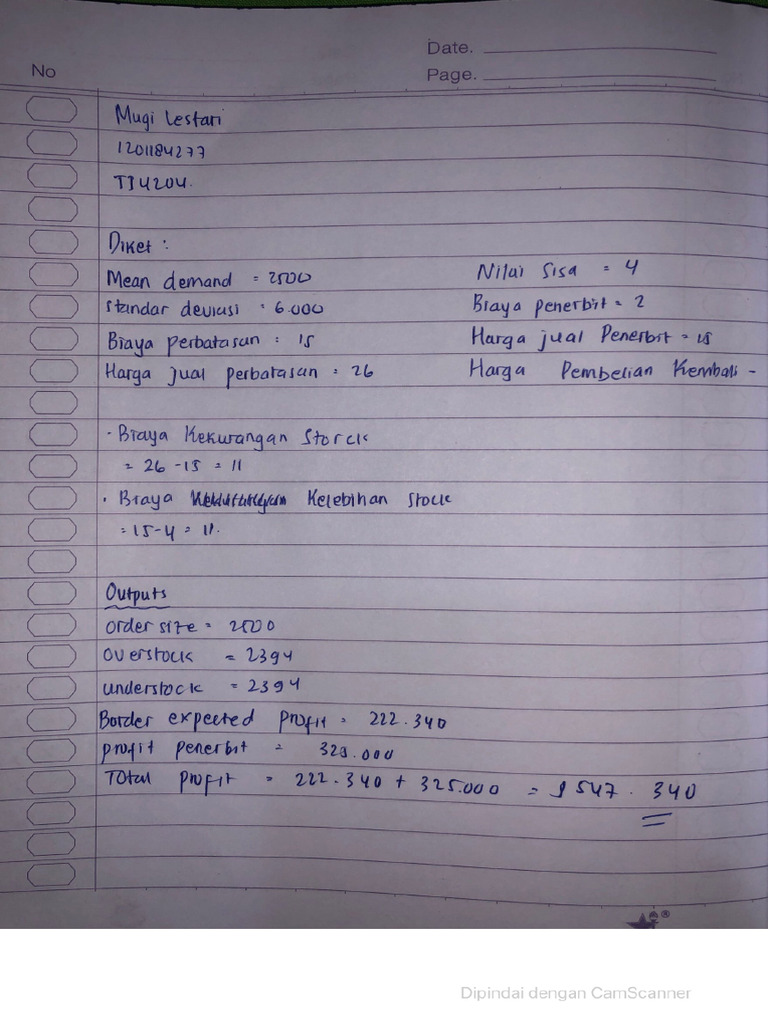 Date.
No
Page.
Mugi Lestari
1201184277
TI4204.
Diket :
Mean demand = 2500
Nilai Sisa = 4
Standar deviasi : 6.000
Biaya penerbit = 2
Biaya perbatasan : 15
Harga jual Penerbit = 15
Harga jual perbatasan : 26
Harga Pembelian Kembali -
· Biaya Kekurangan Storck
= 26 - 15 = 11
· Biaya Kelebihan Stock
= 15 - 4 = 11.
Outputs
order size = 2500
overstock = 2394
understock = 2394
Border expected profit = 222.340
profit penerbit = 325.000
Total profit = 222.340 + 325.000 = $ 547.340
Dipindai dengan CamScanner